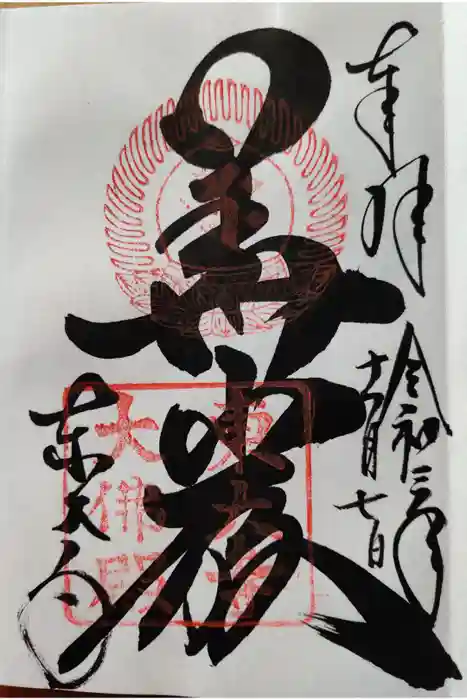 奉拝
令和三年
十一月七日
華厳
東大寺
東大寺
大佛殿